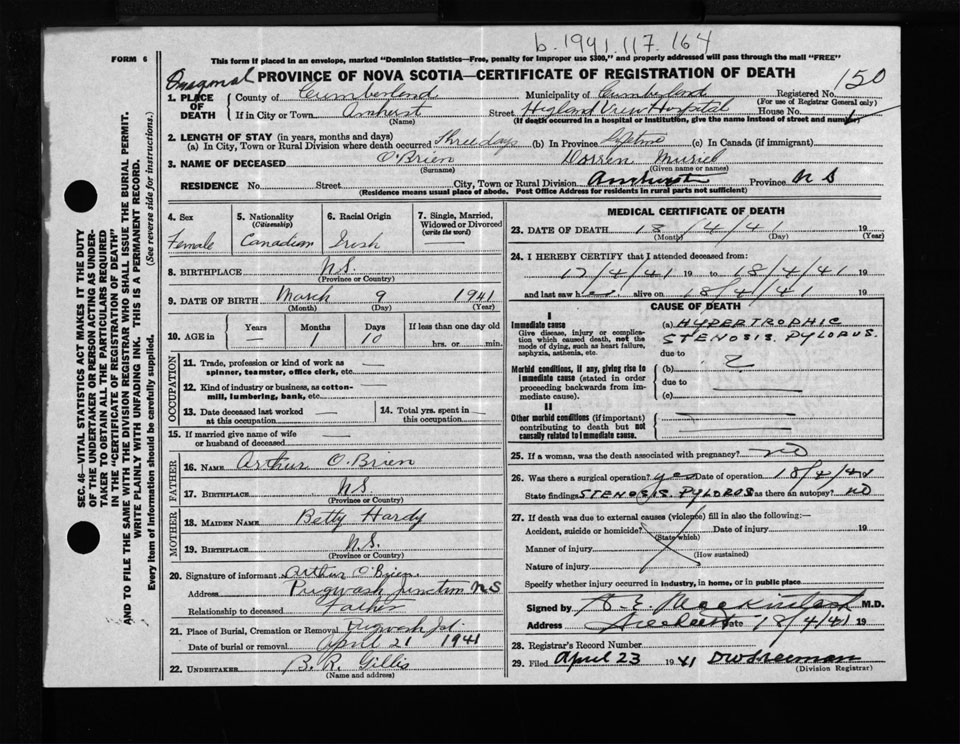 b. 1941. 117. 164
FORM 6
This form if placed in an envelope, marked "Dominion Statistics—Free, penalty for improper use $300," and properly addressed will pass through the mail "FREE"
PROVINCE OF NOVA SCOTIA—CERTIFICATE OF REGISTRATION OF DEATH
150
1. PLACE OF DEATH
County of Cumberland Municipality of Cumberland Registered No.
(For use of Registrar General only)
If in City or Town Amherst Street Higland View Hospital House No.
(Name) (If death occurred in a hospital or institution, give the name instead of street and number)
2. LENGTH OF STAY (in years, months and days)
(a) In City, Town or Rural Division where death occurred Three days (b) In Province Lifetime (c) In Canada (if immigrant)
3. NAME OF DECEASED O'Brien Dorren Muriel
(Surname) (Given name or names)
RESIDENCE No. Street City, Town or Rural Division Amherst Province N S
(Residence means usual place of abode. Post Office Address for residents in rural parts not sufficient)
4. Sex 5. Nationality (Citizenship) 6. Racial Origin 7. Single, Married, Widowed or Divorced (write the word)
Female Canadian Irish —
8. BIRTHPLACE N.S.
(Province or Country)
9. DATE OF BIRTH March 9 1941
(Month) (Day) (Year)
10. AGE in Years Months Days If less than one day old
— 1 10 hrs. or min.
OCCUPATION
11. Trade, profession or kind of work as spinner, teamster, office clerk, etc. —
12. Kind of industry or business, as cotton-mill, lumbering, bank, etc. —
13. Date deceased last worked at this occupation — 14. Total yrs. spent in this occupation —
15. If married give name of wife or husband of deceased —
FATHER
16. NAME Arthur O'Brien
17. BIRTHPLACE N.S.
(Province or Country)
MOTHER
18. MAIDEN NAME Betty Hardy
19. BIRTHPLACE N.S.
(Province or Country)
20. Signature of informant Arthur O'Brien
Address Pugwash Junction N S
Relationship to deceased Father
21. Place of Burial, Cremation or Removal Pugwash Jct.
Date of burial or removal April 21 1941
22. UNDERTAKER B. R. Gillis
(Name and address)
MEDICAL CERTIFICATE OF DEATH
23. DATE OF DEATH 18/4/41 19
(Month) (Day) (Year)
24. I HEREBY CERTIFY that I attended deceased from:
17/4/41 19 to 18/4/41 19
and last saw her alive on 18/4/41 19
CAUSE OF DEATH
I
Immediate cause
Give disease, injury or complication which caused death, not the mode of dying, such as heart failure, asphyxia, asthenia, etc.
(a) HYPERTROPHIC
STENOSIS. PYLORUS.
due to
Morbid conditions, if any, giving rise to immediate cause (stated in order proceeding backwards from immediate cause)
(b) ?
due to
(c)
II
Other morbid conditions (if important) contributing to death but not causally related to immediate cause.
25. If a woman, was the death associated with pregnancy? NO
26. Was there a surgical operation? yes Date of operation 18/4/41
State findings STENOSIS. PYLOROS Was there an autopsy? NO
27. If death was due to external causes (violence) fill in also the following:—
Accident, suicide or homicide? Date of injury 19
(State which)
Manner of injury
(How sustained)
Nature of injury
Specify whether injury occurred in industry, in home, or in public place
Signed by E. Mackintosh M.D.
Address Date 18/4/41 19
28. Registrar's Record Number
29. Filed April 23 1941 DW Freeman
(Division Registrar)
SEC. 46—VITAL STATISTICS ACT MAKES IT THE DUTY
OF THE UNDERTAKER OR PERSON ACTING AS UNDER-
TAKER TO OBTAIN ALL THE PARTICULARS REQUIRED
IN THE "CERTIFICATE OF REGISTRATION OF DEATH"
AND TO FILE THE SAME WITH THE DIVISION REGISTRAR WHO SHALL ISSUE THE BURIAL PERMIT.
WRITE PLAINLY WITH UNFADING INK. THIS IS A PERMANENT RECORD.
Every item of information should be carefully supplied. (See reverse side for instructions.)